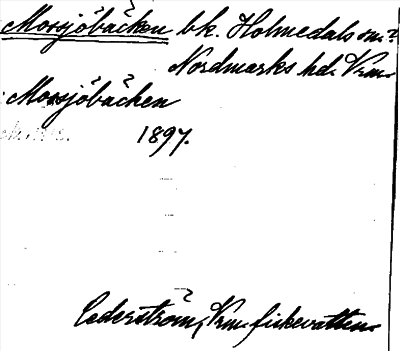 Mossjöbäcken bk. Holmedals sn.?
Nordmarks hd. Vrm.
Mossjöbäcken
1897.
Cederström, Vrm. fiskevatten